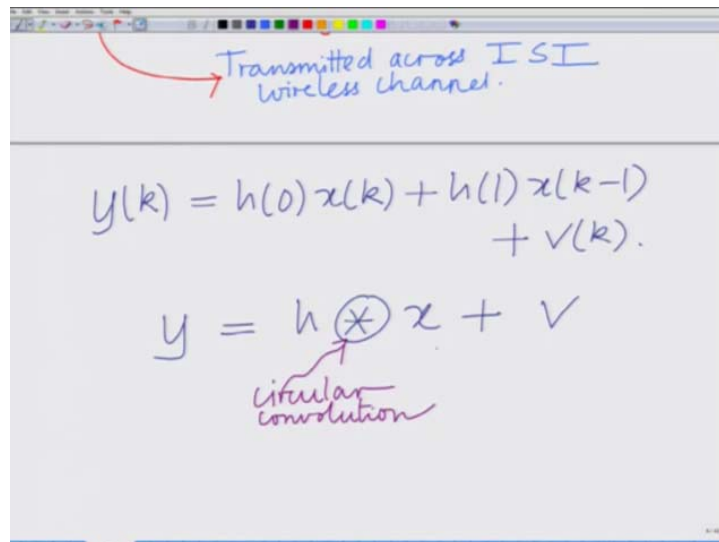 Transmitted across ISI
wireless channel.
y(k) = h(0)x(k) + h(1)x(k-1)
+ v(k).
y = h ⊛ x + v
circular
convolution